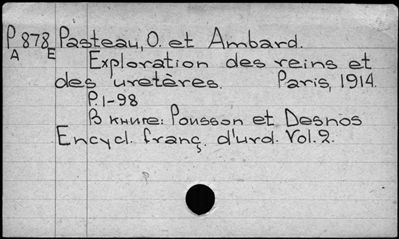 P 878 Pasteau, O. et Ambard.
A E Exploration des reins et
des uretères. Paris, 1914.
P. 1-98
В книге: Pousson et Desnos
Encycl. franç. d'urd. Vol. 2.